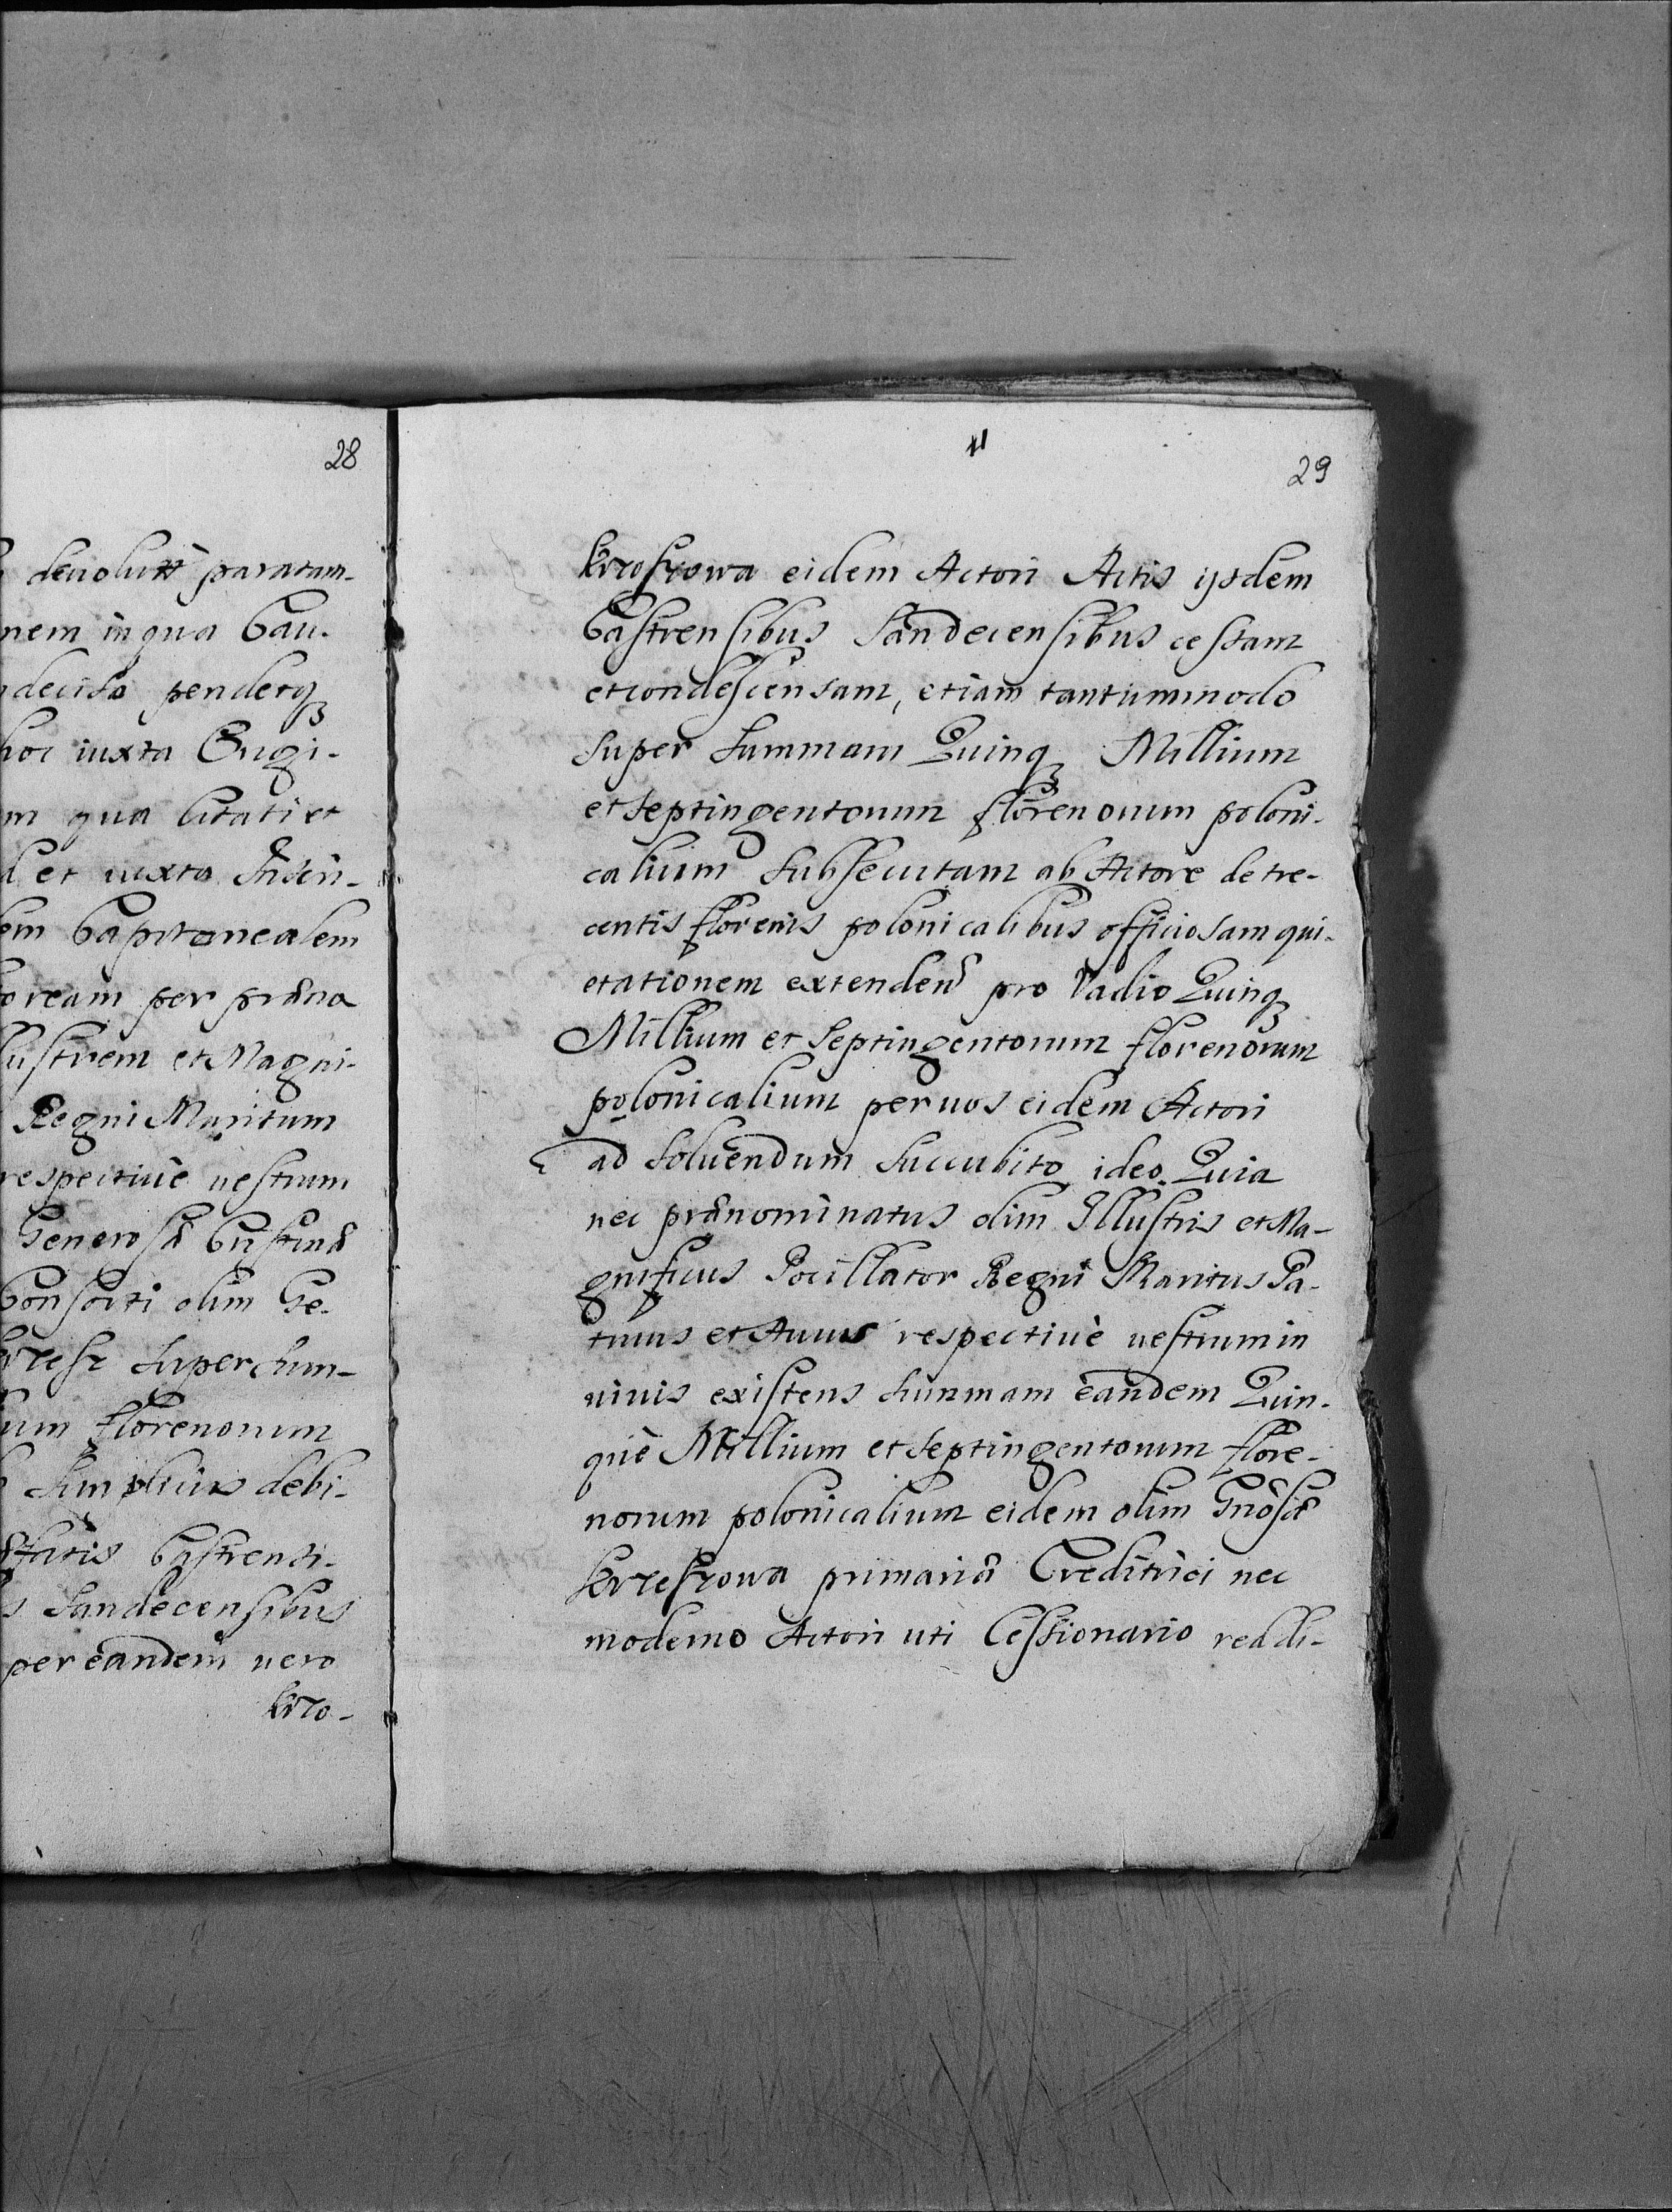 28
devolut paratam-
nem in qua Cau-
decisa penderꝗ
hoc iuxta Exigi-
m qua litati et
et iuxta Inscri-
em Capitanealem
oream per prӕna
lustrem et Magni-
Regni Maritum
respective vestrum
Generosӕ Cristinӕ
Consorti olim Ge-
super sum-
um florenorum
simplicis debi-
Castrensi-
s Sandecensibus
per eandem vero
krzo-
29
krzosзowa eidem Actori Actis ijsdem
Castrensibus Sandecensibus cessam
et condescensam, etiam tantummodo
super summam Quinqꝫ Millium
et Septingentorum florenorum poloni-
calium subsecutam ab Actore de tre-
centis florenis polonicalibus officiosam qui-
etationem extenden̄ pro Vadio Quinqꝫ
Millium et Septingentorum florenorum
polonicalium per vos eidem Actori
ad solvendum succubito ideo. Quia
nec prӕnominatus olim Illustris et Ma-
gnificus Pocillator Regni Maritus Pa-
truus et Avus respective vestrum in
vivis existens summam eandem Quin-
que Millium et Septingentorum flore-
norum polonicalium eidem olim Gnosӕ
krzesзowa primariӕ Creditrici nec
moderno Actori uti Cessionario reddi-